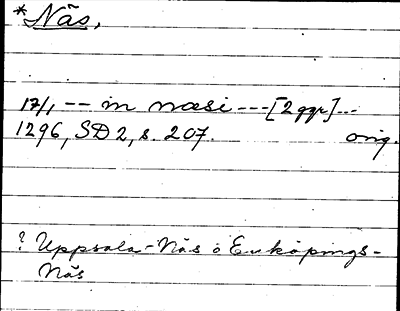 *Näs,
17/1 -- in næsi --- [2 ggr] ---
1296, SD 2, s. 207. orig.
? Uppsala-Näs o Enköpings-
Näs